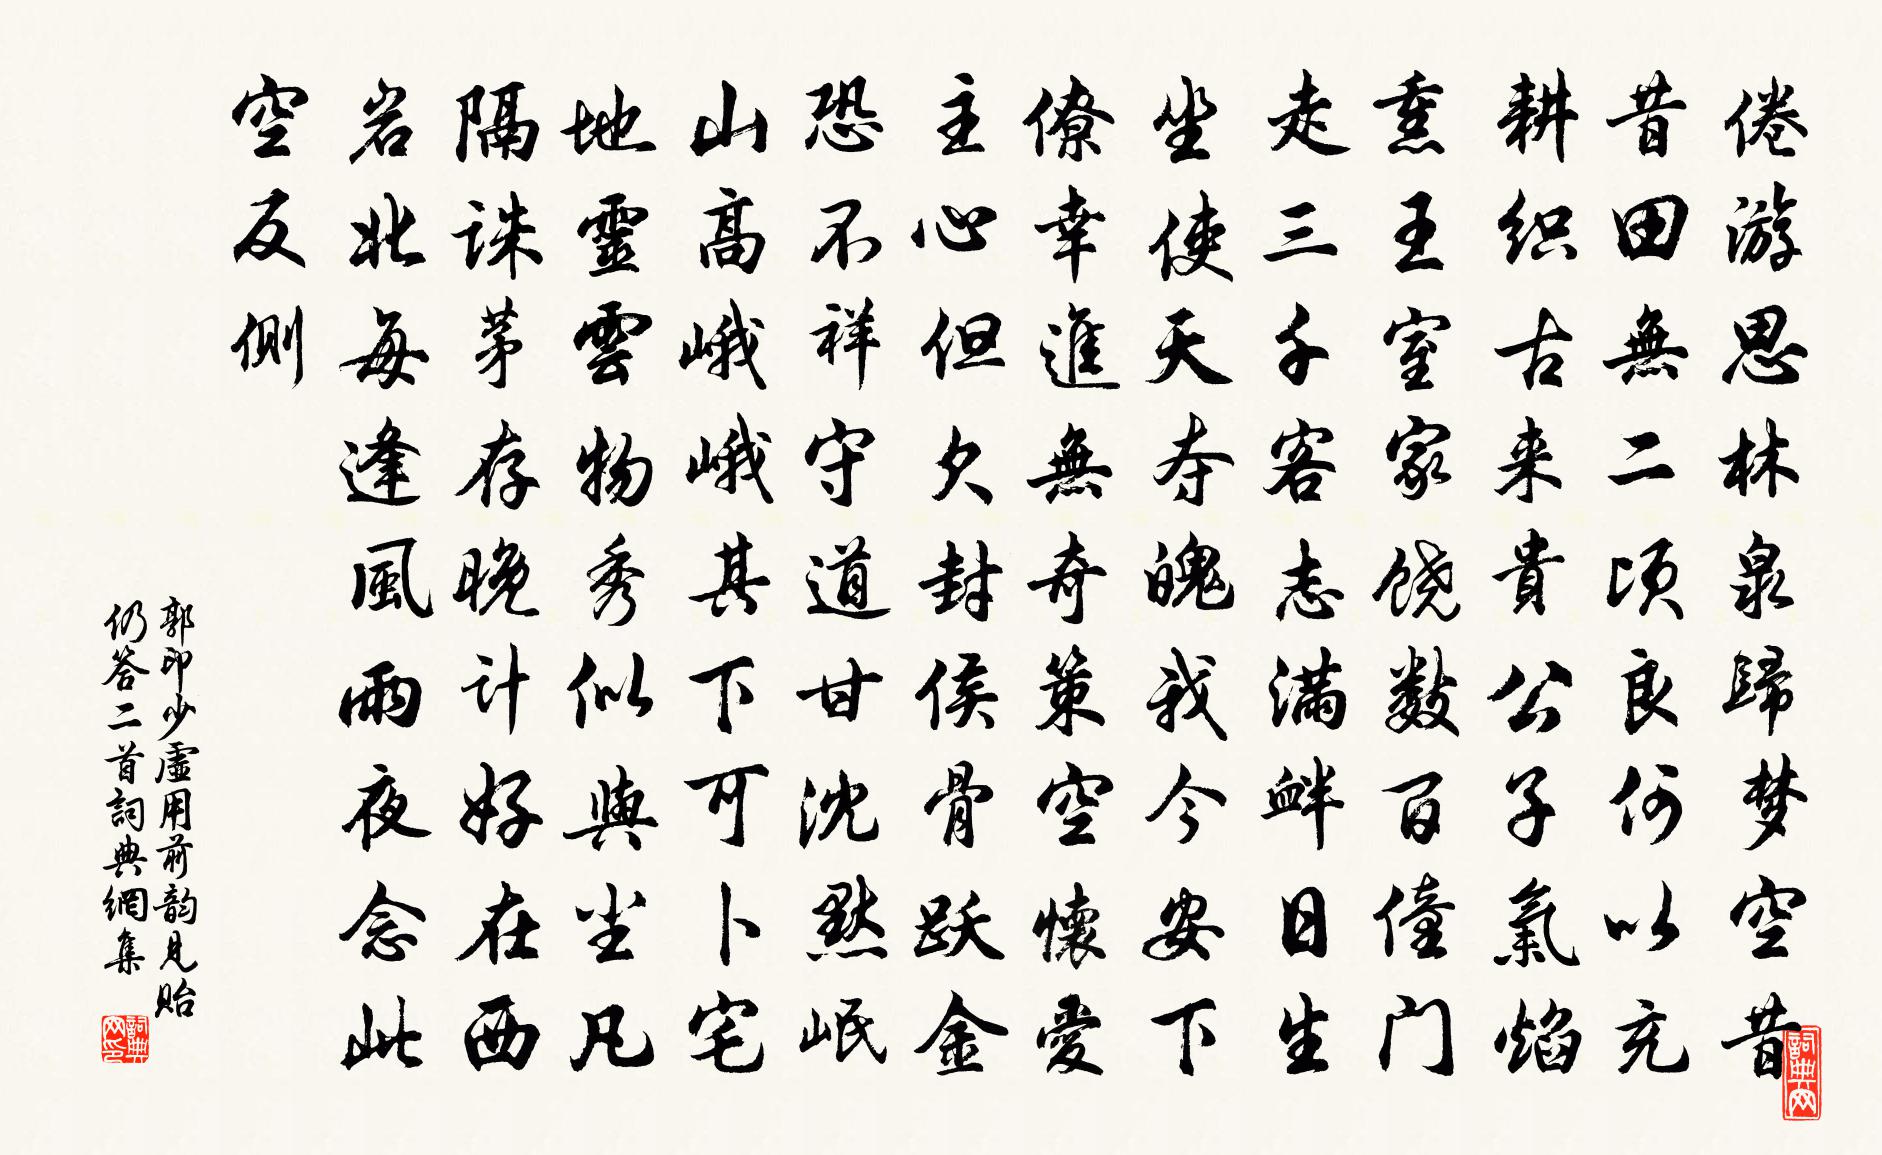 倦游思林泉歸梦空昔
昔田無二顷良何以充
耕织古来貴公子氣焰
熏王室家饶数百僮门
走三千客志满衅日生
坐使天夺魄我今安下
僚幸進無奇策空懷愛
主心但欠封侯骨跃金
恐不祥守道甘沈黙岷
山高峨峨其下可卜宅
地靈雲物秀似與尘凡
隔诛茅存晚计好在西
岩北每逢風雨夜念此
空反侧
郭印少虛用前韵見貽
仍答二首詞典網集
詞典网
詞典网印